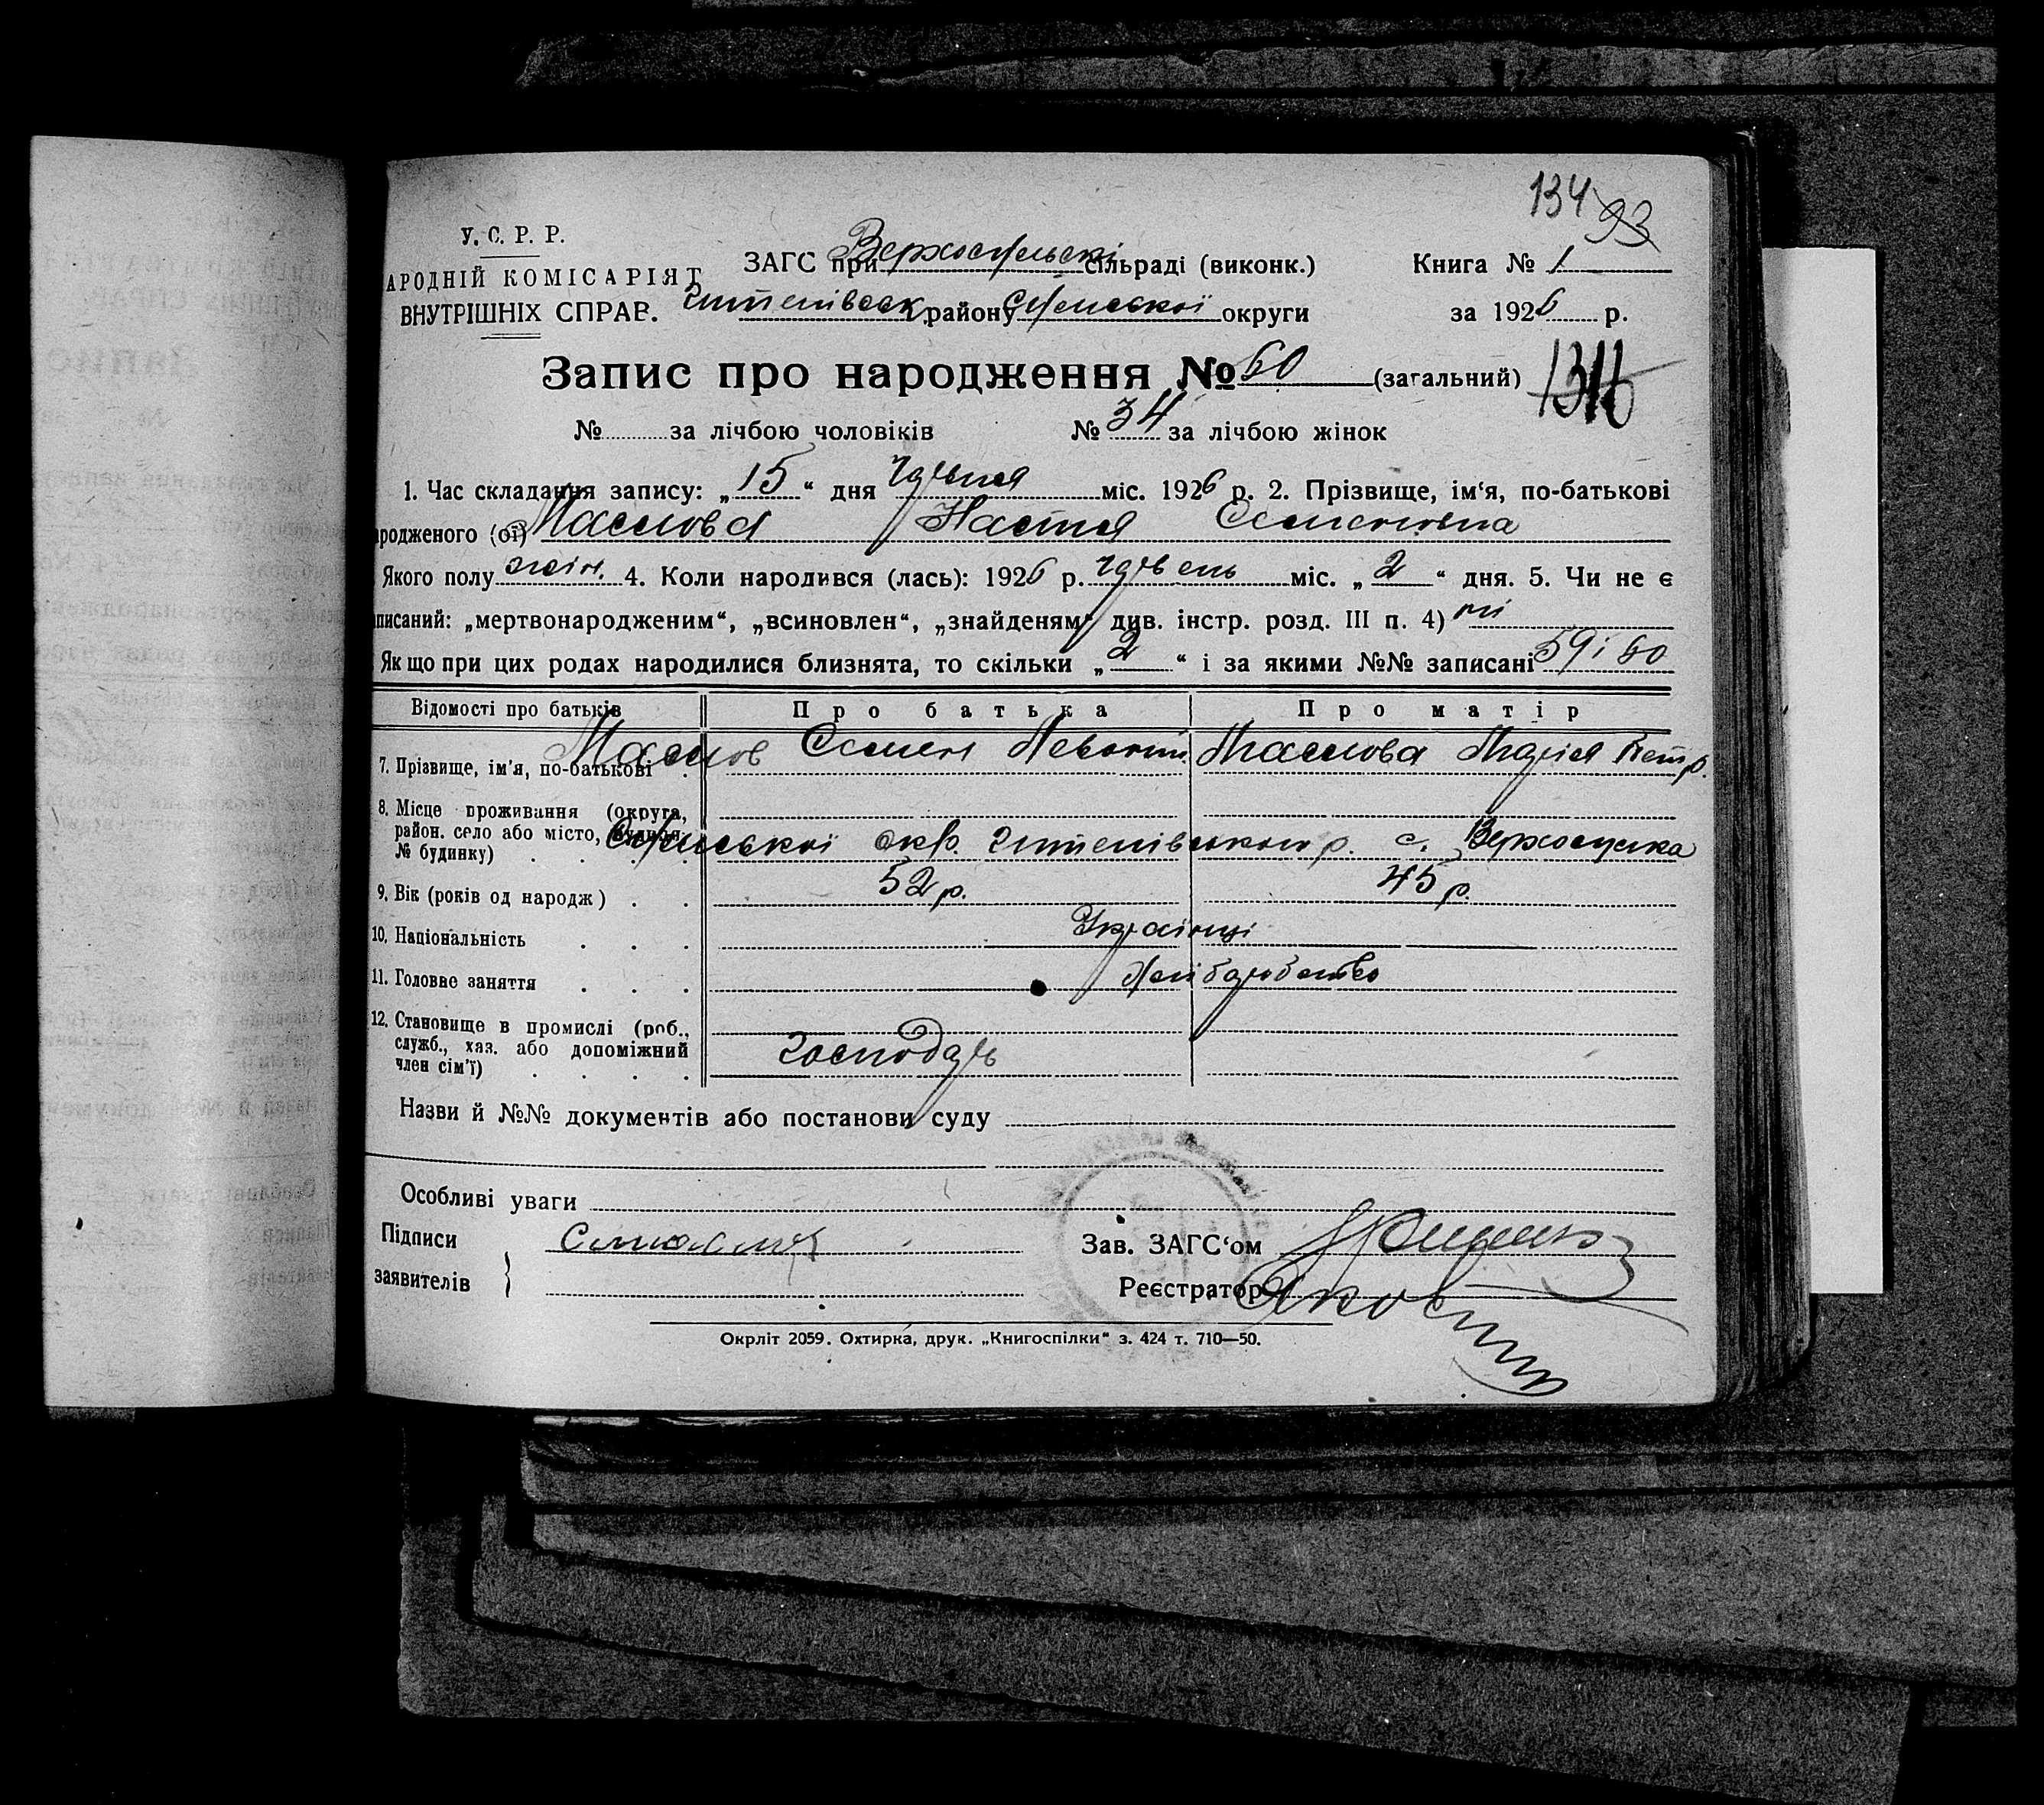 134 93
У. С. Р. Р.
АРОДНІЙ КОМІСАРІЯТ
ВНУТРІШНІХ СПРАВ.
ЗАГС при сільраді (виконк.)
Книга № 1
району Сумської округи
за 1926 р.
Запис про народження № 60 (загальний)
№ за лічбою чоловіків № 34 за лічбою жінок
1. Час складання запису: „15“ дня червня міс. 1926 р. 2. Прізвище, ім‘я, по-батькові
родженого (ої) Маслова Настя Семеновна
Якого полу жін. 4. Коли народився (лась): 1926 р. червень міс. „2“ дня. 5. Чи не є
писаний: „мертвонародженим“, „всиновлен“, „знайденям“ див. інстр. розд. III п. 4) ні
Якщо при цих родах народилися близнята, то скільки „2“ і за якими №№ записані 59 і 60
Відомості про батьків
Про батька
Про матір
7. Прізвище, ім‘я, по-батькові . Маслов Семен Маслова Марія Петр.
8. Місце проживання (округа,
район. село або місто,
№ будинку) . . . Сумської окр. р. с. Верхосулка
9. Вік (років од народж) . . 52 р. 45 р.
10. Національність . . . Українці
11. Головне заняття . . . Хліборобство
12. Становище в промислі (роб.,
служб., хаз. або допоміжний
член сім‘ї) . . . . господарь
Назви й №№ документів або постанови суду
Особливі уваги
Підписи
заявителів
Зав. ЗАГС‘ом
Реєстратор
Окрліт 2059. Охтирка, друк. „Книгоспілки“ з. 424 т. 710—50.